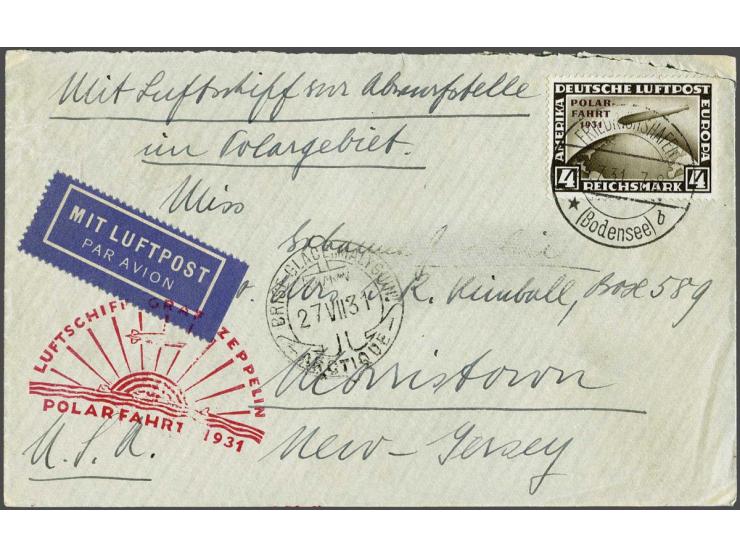 Mit Luftschiff zur Abwurfstelle
im Polargebiet.
DEUTSCHE LUFTPOST
AMERIKA
EUROPA
POLAR-
FAHRT
1931
4 REICHSMARK 4
FRIEDRICHSHAFEN
(Bodensee) b
Miss
MIT LUFTPOST
PAR AVION
27 VII 31
ARCTIQUE
Mrs. R. Kimball, Box 589
Morristown
LUFTSCHIFF GRAF ZEPPELIN
POLARFAHRT 1931
U.S.A.
New-Jersey